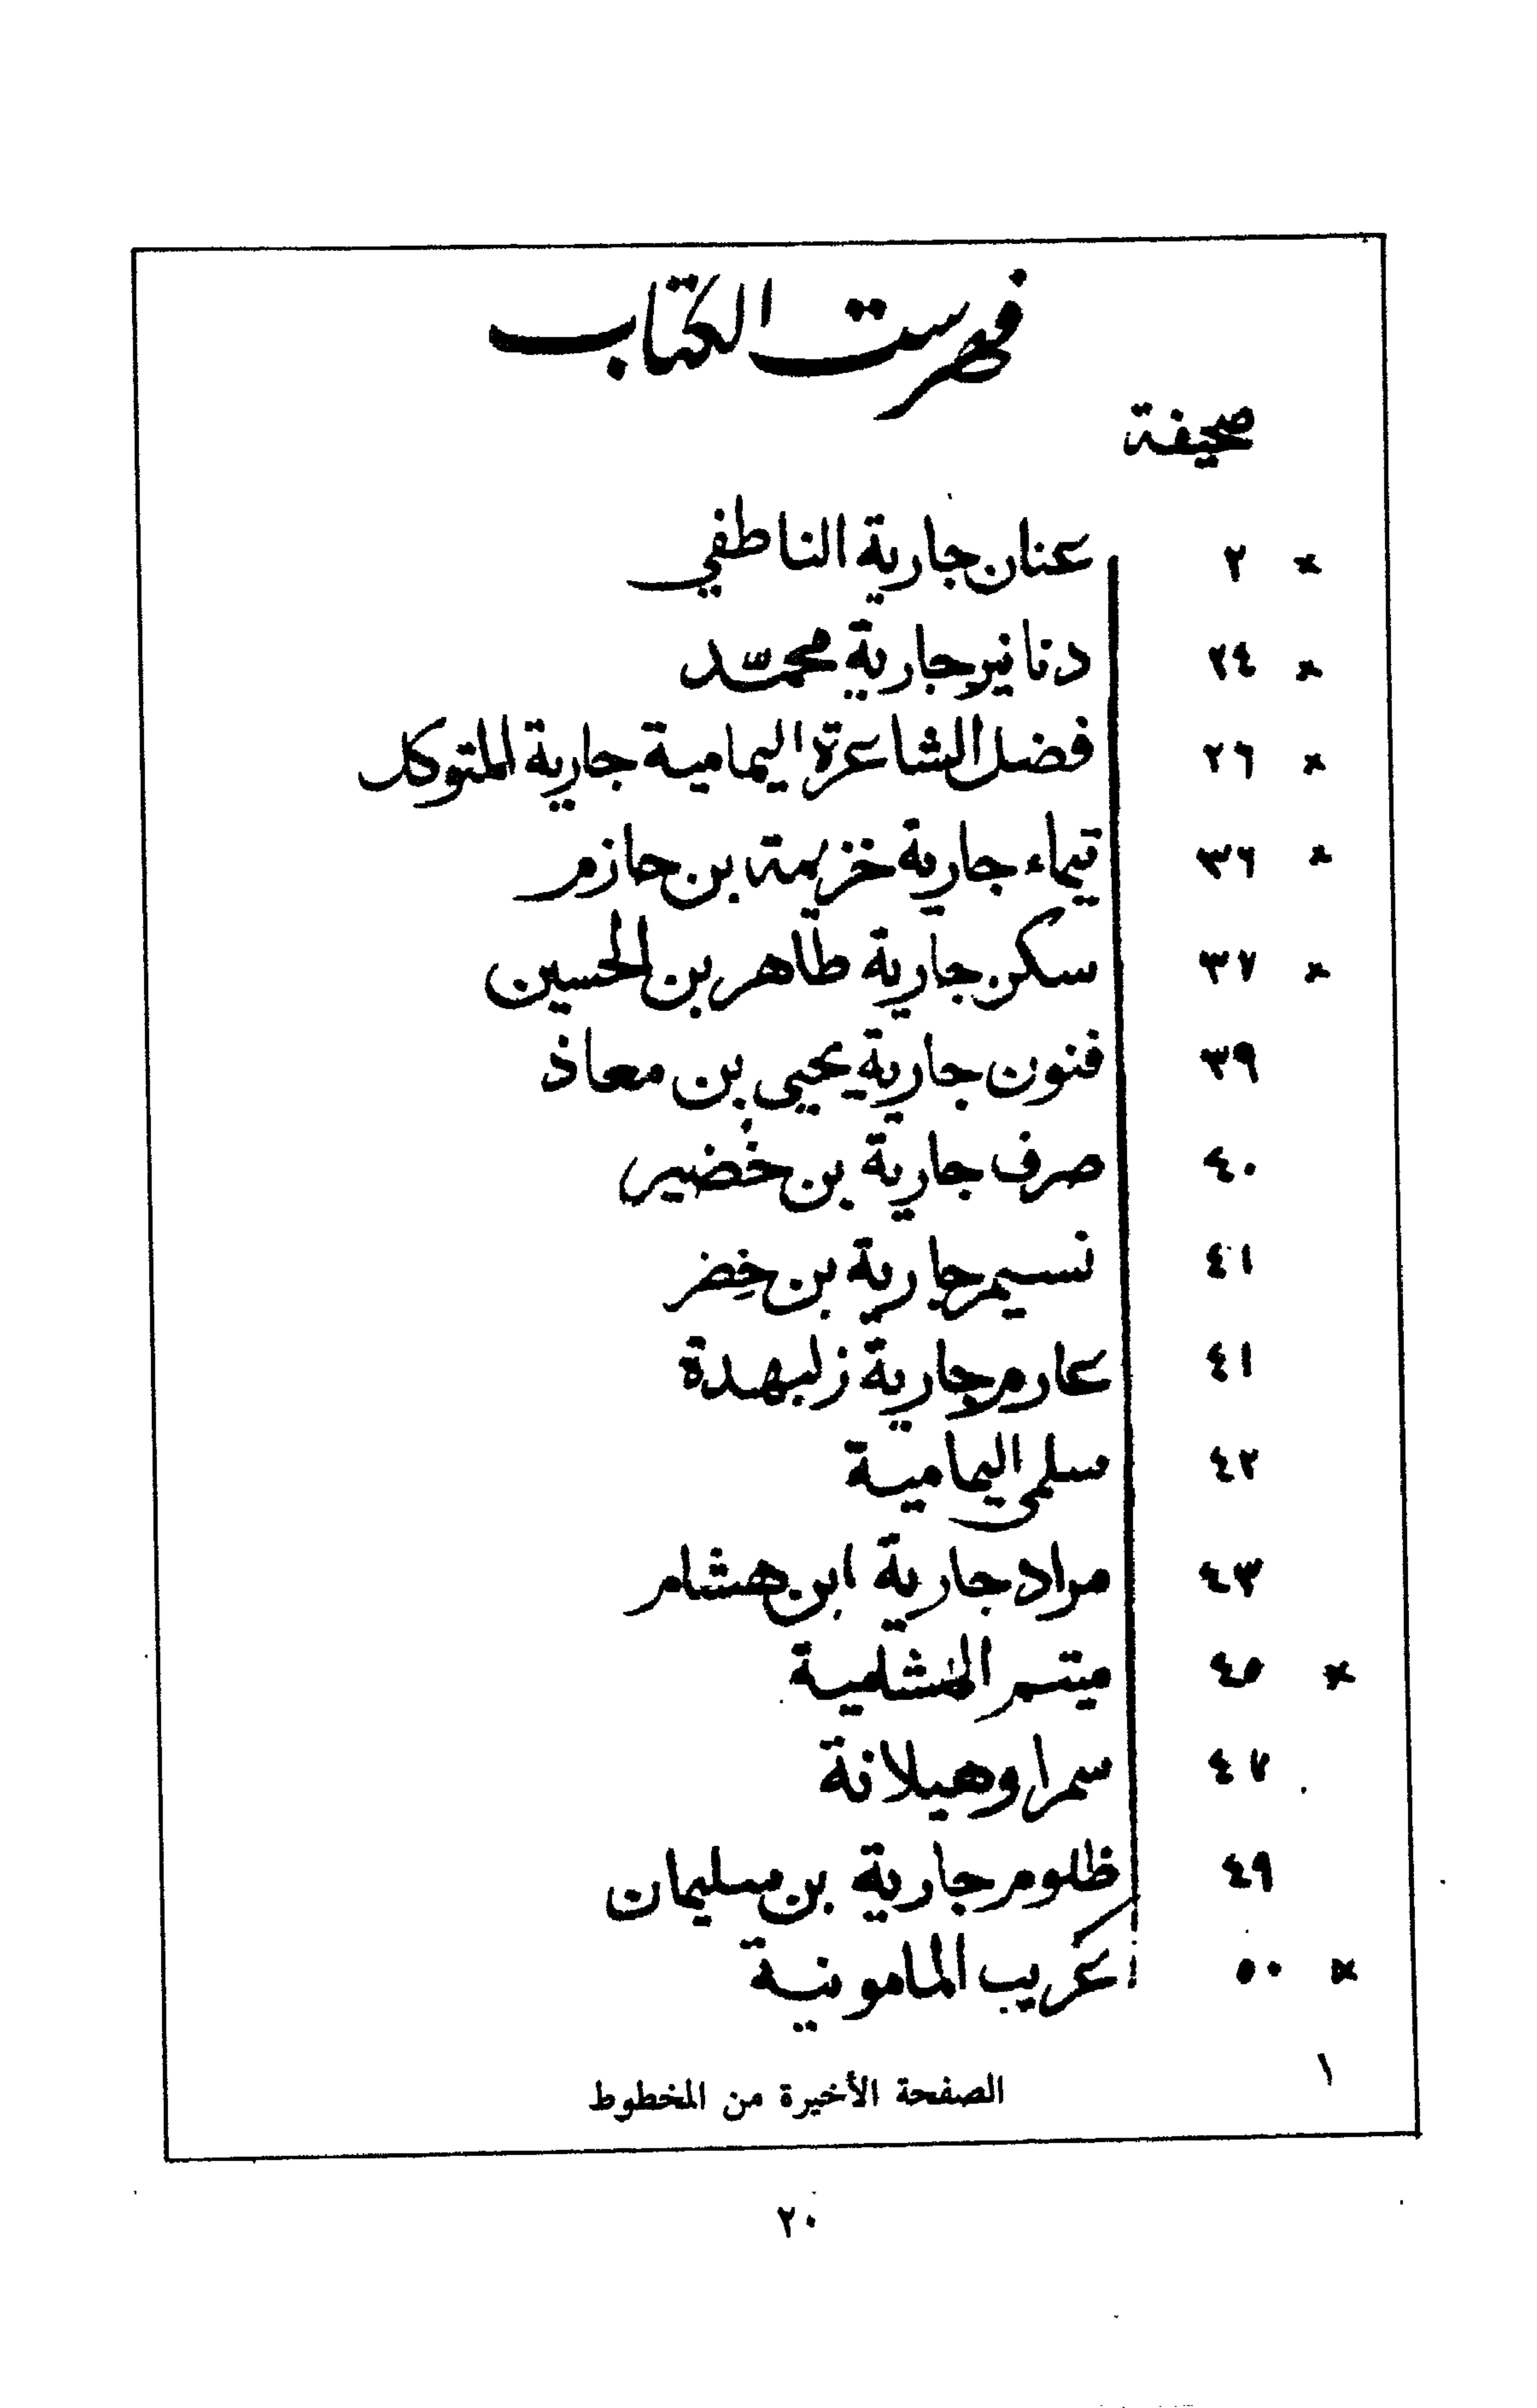 فهرست الكتاب
صحيفة
× ٢ عنان جارية الناطفي
× ٢٤ دنانير جارية محمّد
× ٢٦ فضل الشاعرة اليمامية جارية المتوكل
× ٣٦ تيماء جارية خزيمة بن حازم
× ٣٧ سكن جارية طاهر بن الحسين
٣٩ فنون جارية يحيى بن معاذ
٤٠ صرف جارية بن خضير
٤١ نسيم جارية بن خضر
٤١ عارم جارية زلبهدة
٤٢ سلمى اليمامية
٤٣ مراد جارية ابن هشام
× ٤٥ ميتسم
٤٧ سمرا وهيلانة
٤٩ ظلوم جارية بن سليمان
× ٥٠ عريب المامونية
١
الصفحة الأخيرة من المخطوط
٢٠